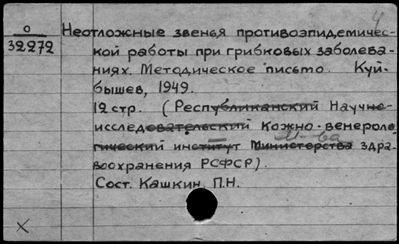 4
О
32272
Неотложные звенья противоэпидемичес-
кой работы при грибковых заболева-
ниях. Методическое письмо. Куй-
бышев, 1949.
12 стр. (Республиканский Научно-
исследовательский Кожно-венероло-
гический институт М-ва Министерства здра-
воохранения РСФСР).
Сост. Кашкин П.Н.
X